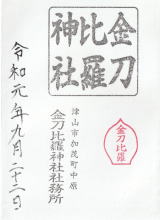 金刀
比羅
神社
津山市加茂町中原
金刀比羅神社社務所
金刀比羅
令和元年九月二十二日